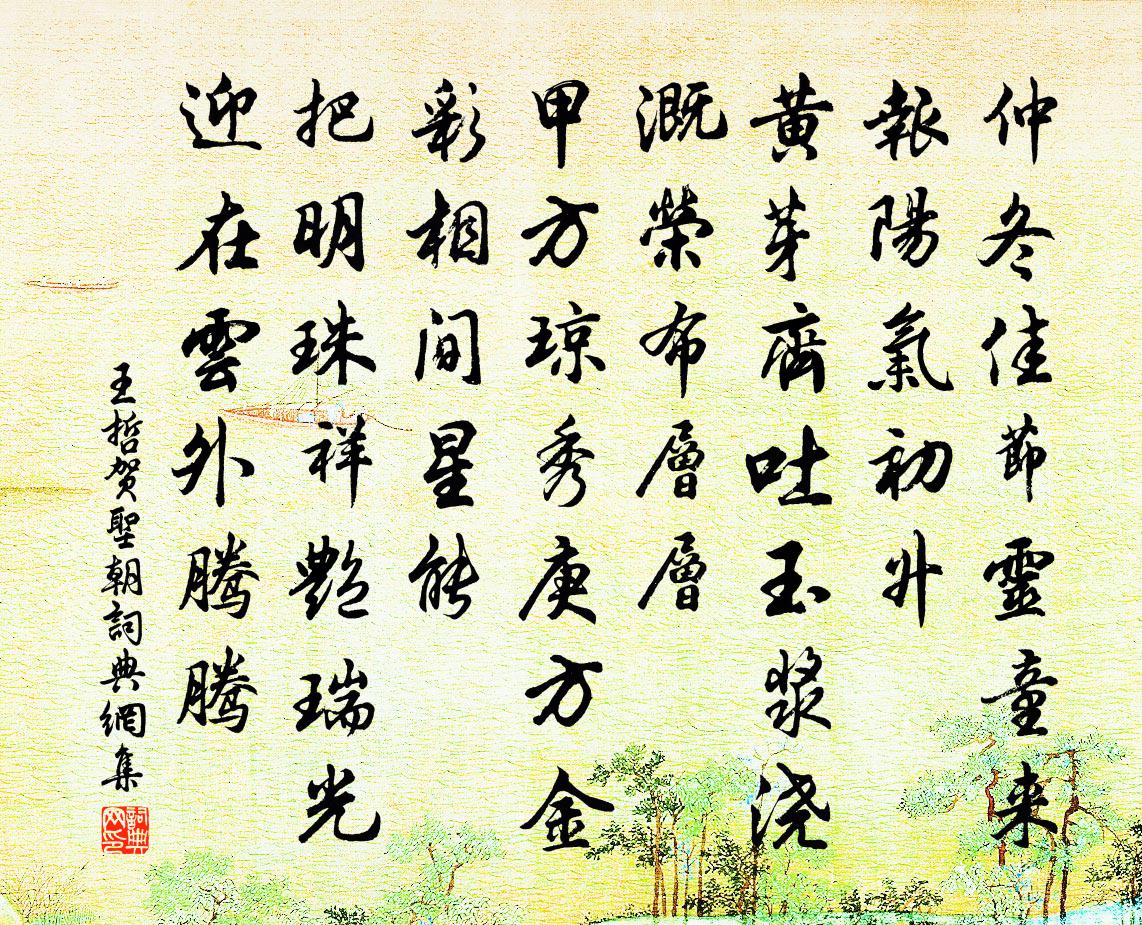 仲冬佳節靈童来
報陽氣初升
黃芽齊吐玉漿浇
溉榮布層層
甲方琼秀庚方金
彩相間星能
把明珠祥艷瑞光
迎在雲外騰騰
王哲贺聖朝詞典網集
詞典网印